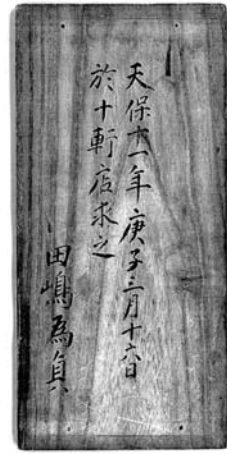 天保十一年庚子三月十六日
於十軒店求之
田嶋為貞